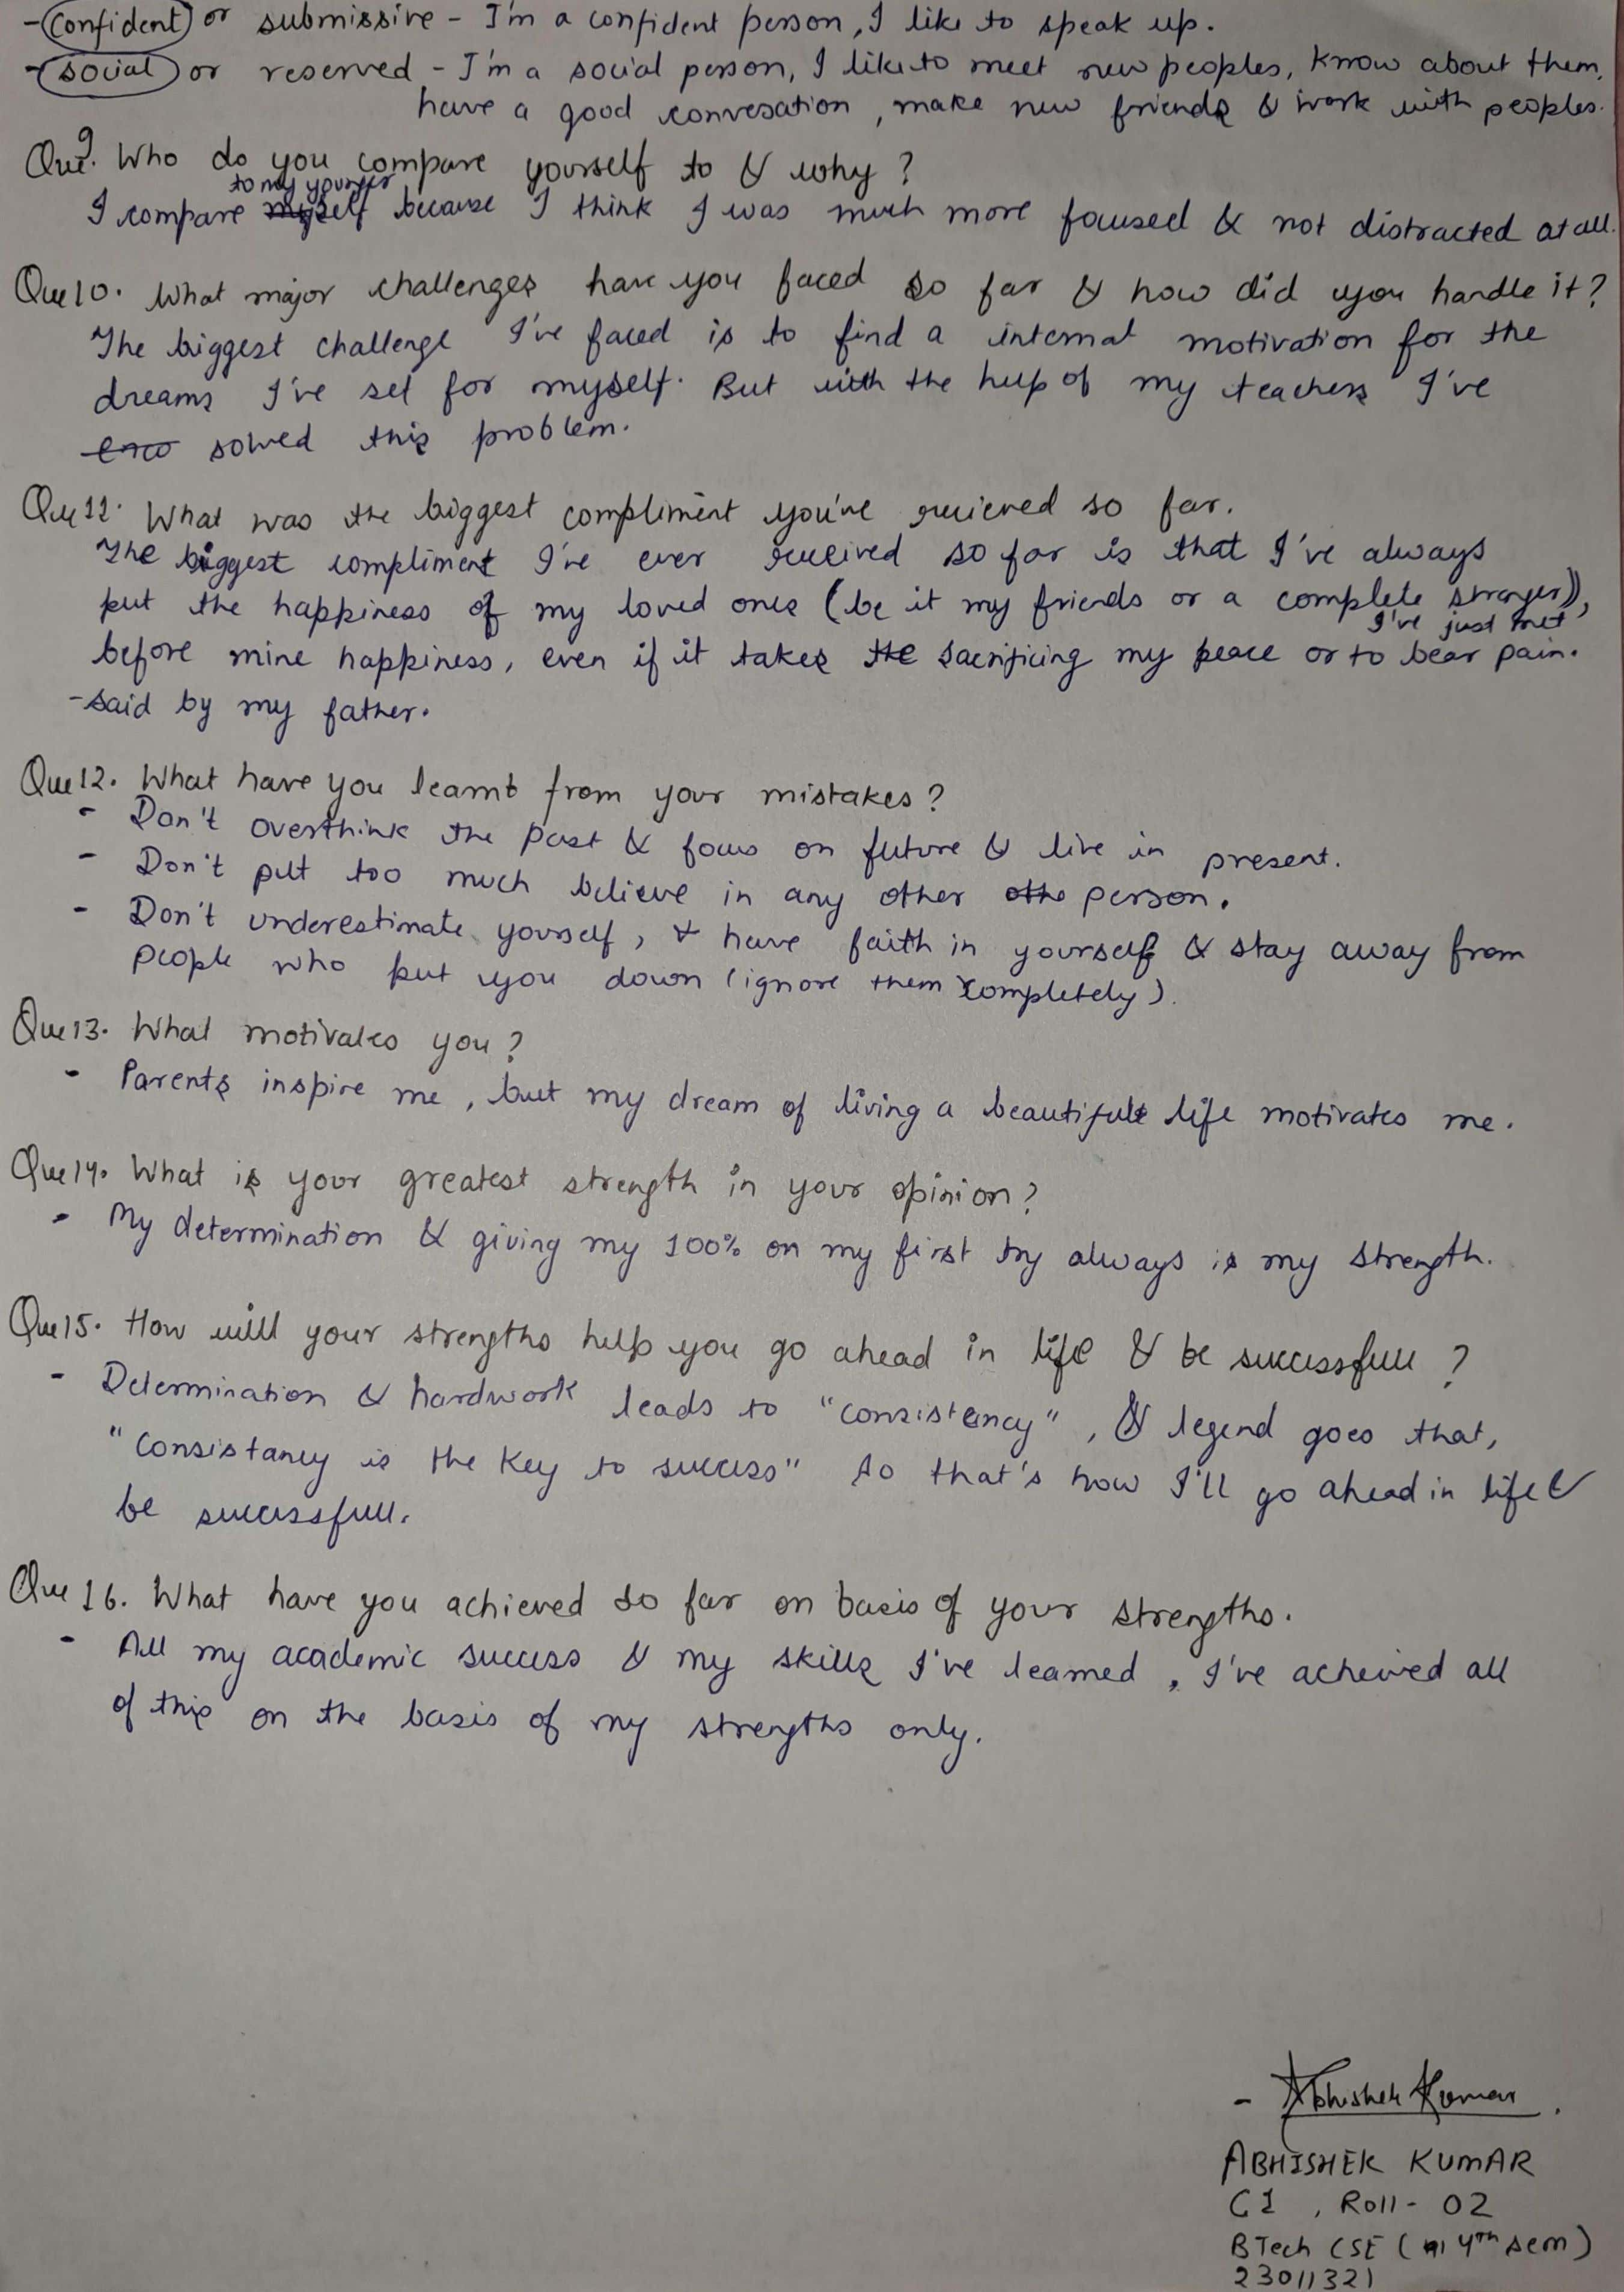 - Confident or submissive - I'm a confident person, I like to speak up.
- social or reserved - I'm a social person, I like to meet new peoples, know about them,
have a good convesation, make new friends & work with peoples.
Que 9. Who do you compare yourself to & why?
to my younger
I compare myself because I think I was much more focused & not distracted at all.
Que 10. What major challenges have you faced so far & how did you handle it?
The biggest challenge I've faced is to find a internal motivation for the
dreams I've set for myself. But with the help of my teachers I've
solved this problem.
Que 11. What was the biggest compliment you've recieved so far.
The biggest compliment I've ever received so far is that I've always
put the happiness of my loved ones (be it my friends or a complete stranger)),
I've just met
before mine happiness, even if it takes the sacrificing my peace or to bear pain.
- said by my father.
Que 12. What have you learnt from your mistakes?
- Don't overthink the past & focus on future & live in present.
- Don't put too much believe in any other othe person.
- Don't underestimate yourself, & have faith in yourself & stay away from
people who put you down (ignore them completely).
Que 13. What motivates you?
- Parents inspire me, but my dream of living a beautiful life motivates me.
Que 14. What is your greatest strength in your opinion?
- My determination & giving my 100% on my first try always is my strength.
Que 15. How will your strengths help you go ahead in life & be successfull ?
- Determination & hardwork leads to "consistency", & legend goes that,
"Consistancy is the key to success" so that's how I'll go ahead in life &
be successfull.
Que 16. What have you achieved so far on basis of your strengths.
- All my academic success & my skills I've learned, I've acheived all
of this on the basis of my strengths only.
- Abhishek Kumar.
ABHISHEK KUMAR
C1, Roll - 02
BTech CSE ( 4th sem)
23011321